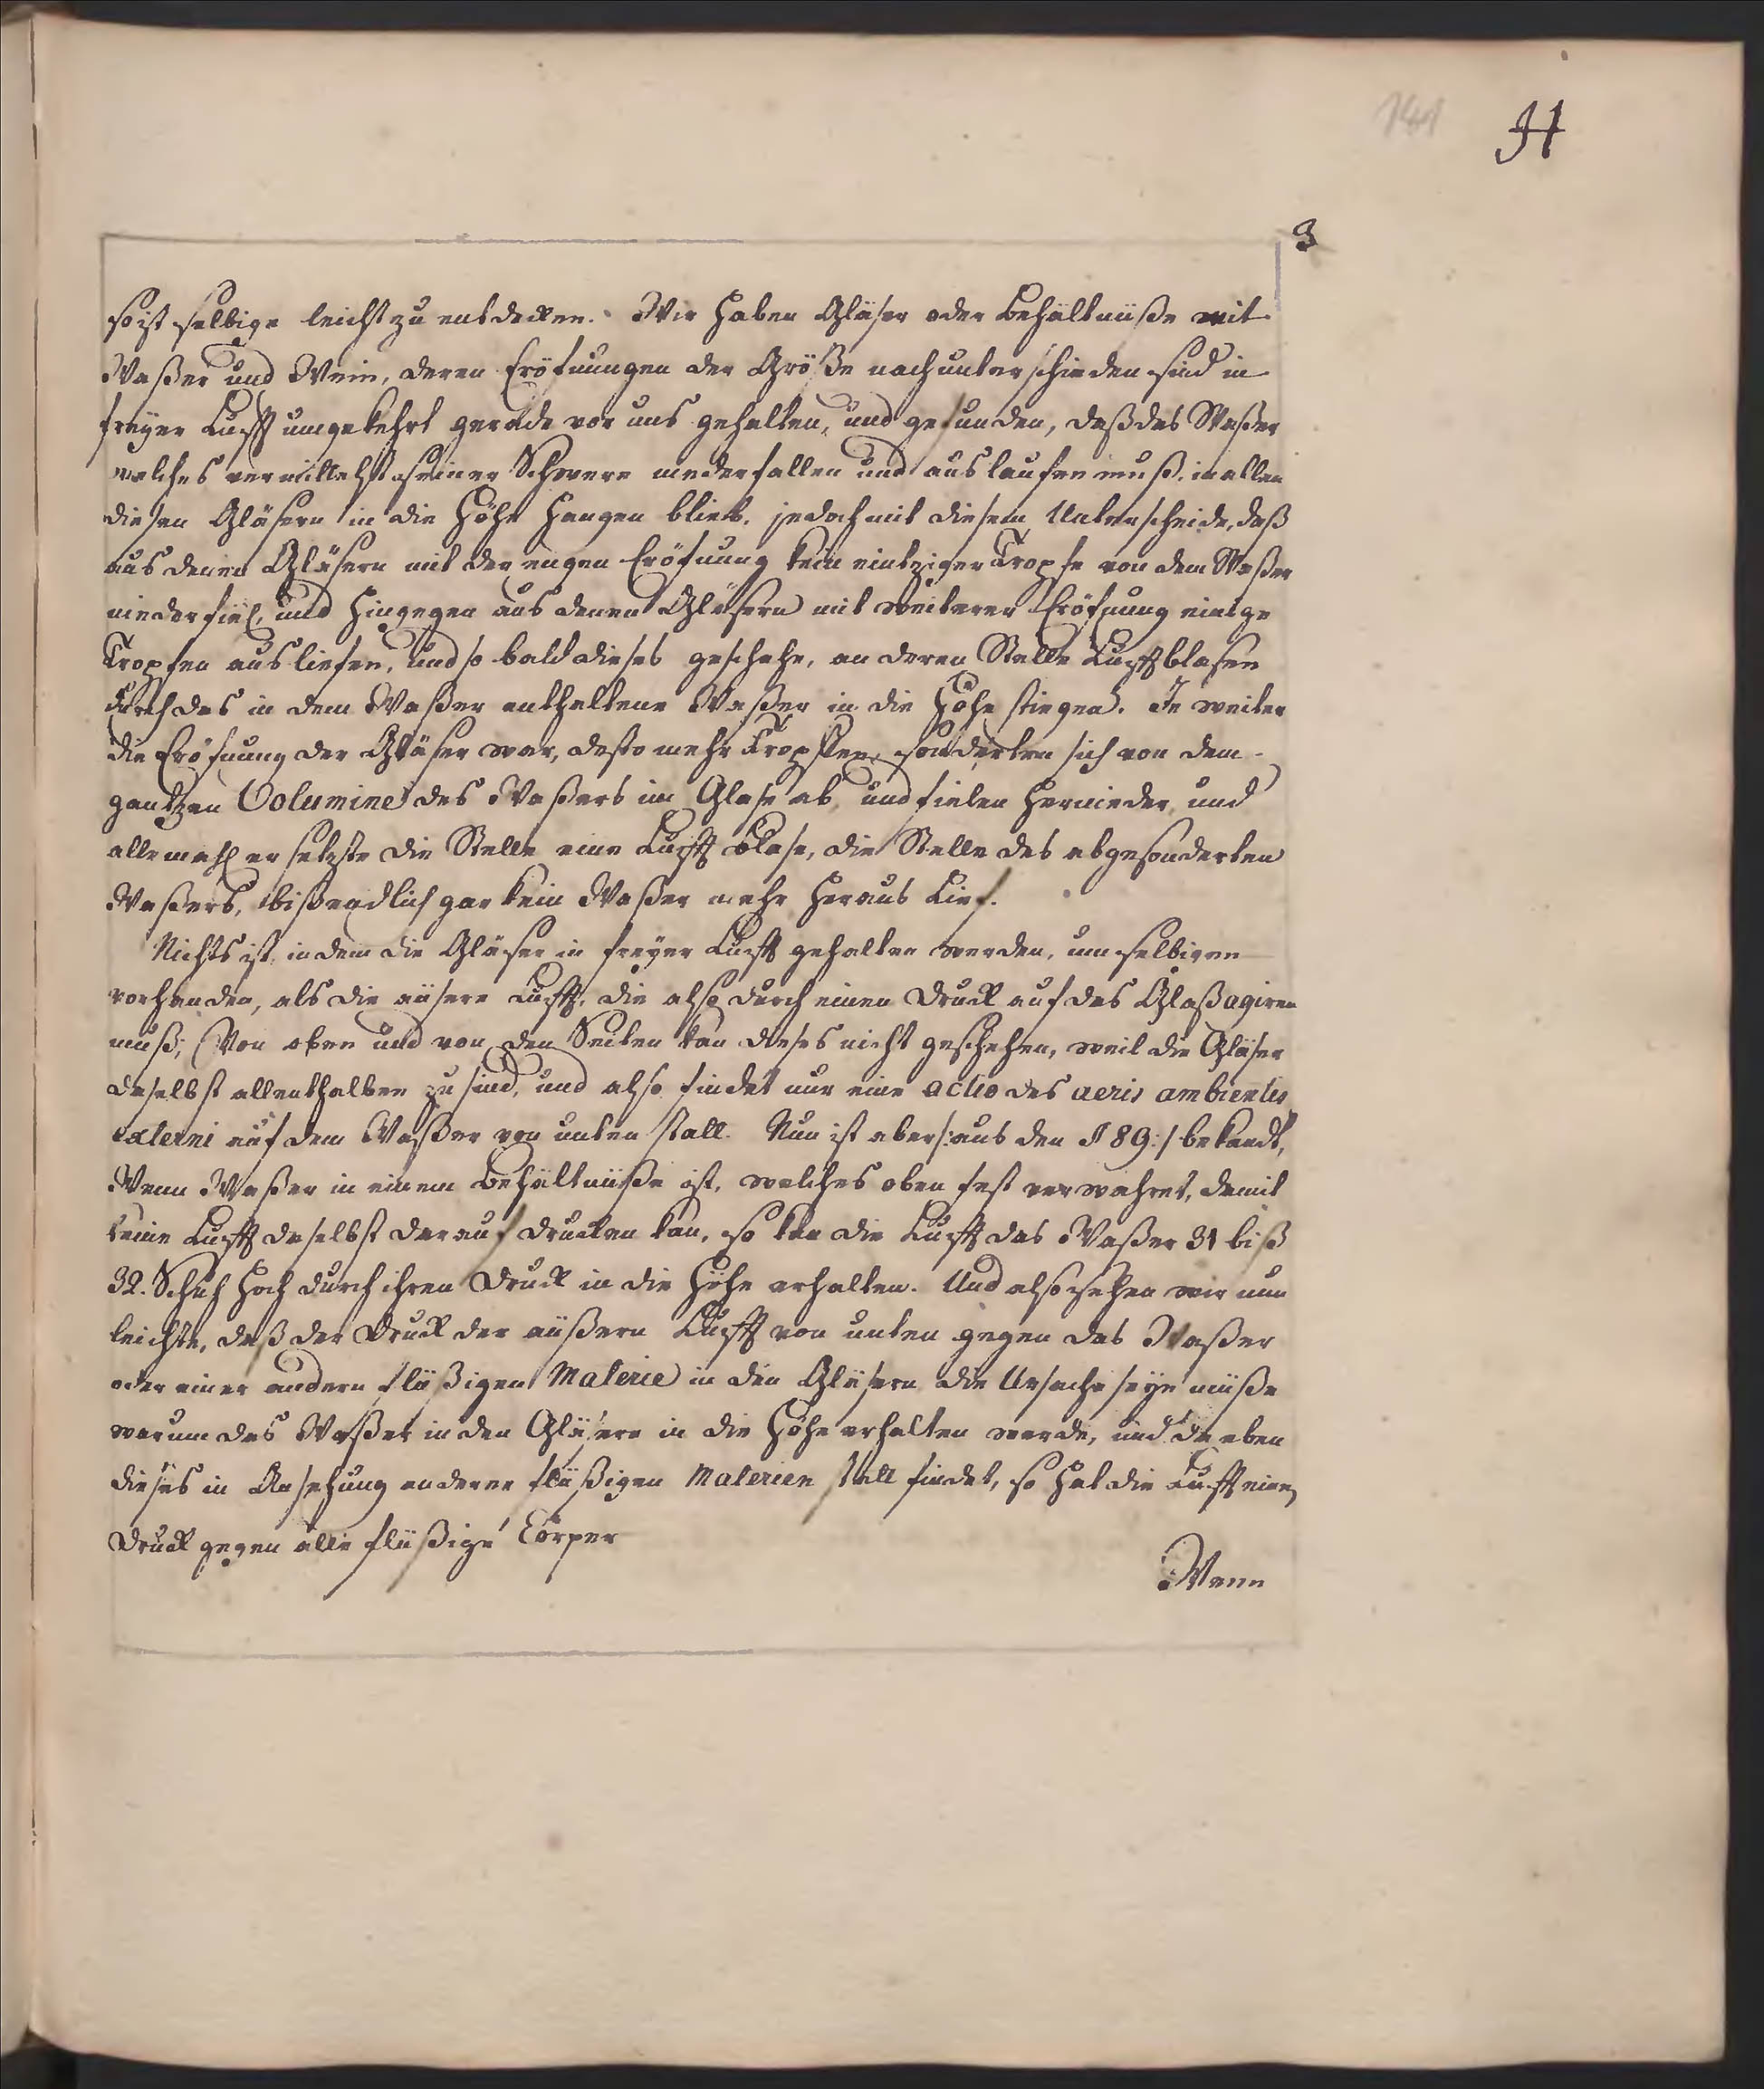 141 H
3
so ist selbige leicht zu entdecken. Wir haben Gläser oder Behältnüße mit
Waßer und Wein, deren Eröfnungen der Größe nach unterschieden sind in
freyer Lufft umgekehrt gerade vor uns gehalten, und gefunden, daß das Waßer
welches vermittelst seiner Schwere niederfallen und auslaufen muß, in allen
diesen Gläsern in die Höhe hangen blieb, jedoch mit diesem Unterscheide, daß
aus denen Gläsern mit der engen Eröfnung kein eintziger Tropfe von dem Waßer
niederfiel, und hingegen aus denen Gläsern mit weiterer Eröfnung einige
Tropfen ausliefen, und so bald dieses geschehe, an deren Stelle Lufftblasen
durch das in dem Waßer enthaltene Waßer in die Höhe stiegen. Je weiter
die Eröfnung der Gläser war, desto mehr Tropffen, sonderten sich von dem
gantzen Volumine des Waßers im Glase ab, und fielen hernieder, und
allemahl ersetzte die Stelle eine Lufft Blase, die Stelle des abgesonderten
Waßers, biß endlich gar kein Waßer mehr heraus Lief.
Nichts ist, indem die Gläser in freyer Lufft gehalten werden, um selbigen
vorhanden, als die äüsere Lufft, die also durch einen Druck auf das Glaß agiren
muß; Von oben und von den Seiten kan dieses nicht geschehen, weil die Gläser
daselbst allenthalben zu sind, und also findet nur eine actio des aeris ambientis
externi auf dem Waßer von unten statt. Nun ist aber /: aus den § 89 :/ bekandt,
Wenn Waßer in einem Behältnüße ist, welches oben fest verwahret, damit
keine Lufft daselbst darauf drucken kan, so kan die Lufft das Waßer 31 biß
32. Schuh hoch durch ihren Druck in die Höhe erhalten. Und also sehen wir nun
leichte, daß der Druck der äüßern Lufft von unten gegen das Waßer
oder einer andern flüßigen Materie in den Gläsern die Ursache seyn müße
warum das Waßer in den Gläsern in die Höhe erhalten werde, und da eben
dieses in Ansehung anderer flüßigen Materien statt findet, so hat die Lufft einen
Druck gegen alle flüßige Cörper
Wenn